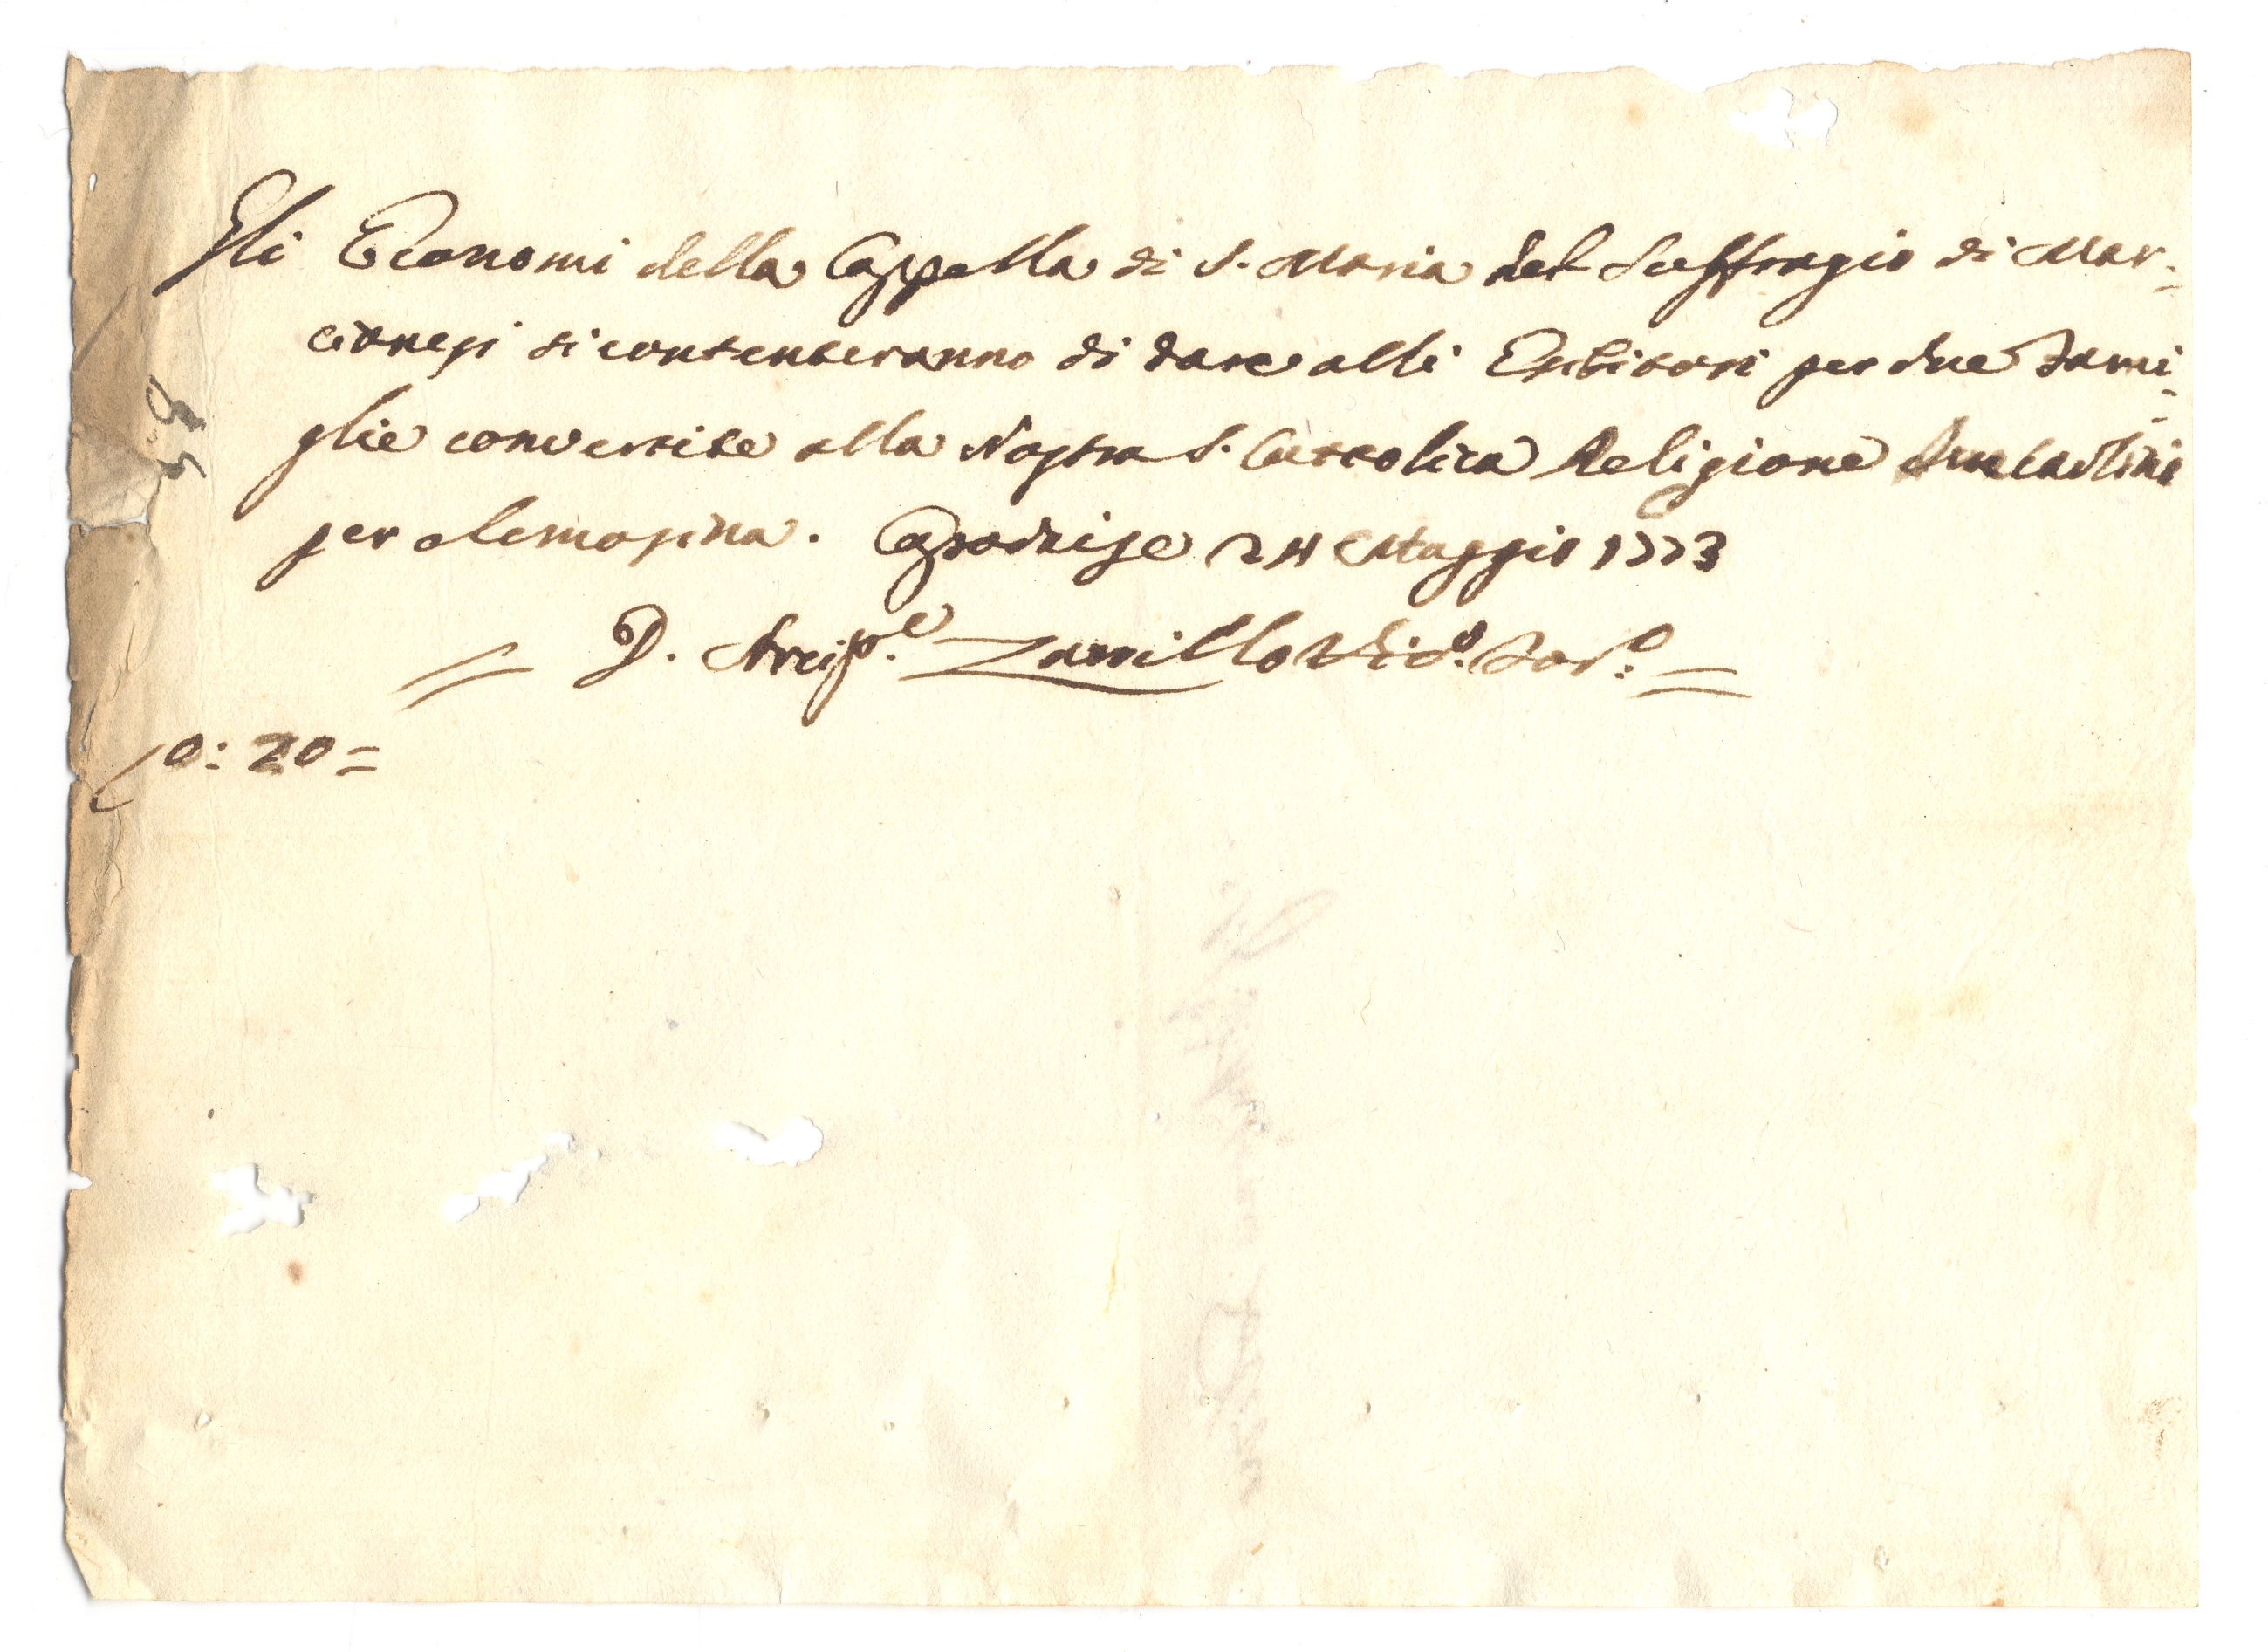 Gli Economi della Cappella di S. Maria del Suffragio di Mar=
cionesi si contenteranno di dare alli Esibitori per due Fami=
glie convertite alla Nostra S. Cattolica Religione due Carlini
per elemosina. Capodrise 24 Maggio 1773
D. Arcip.e Zarrillo Vic.o For.o
0: 20=